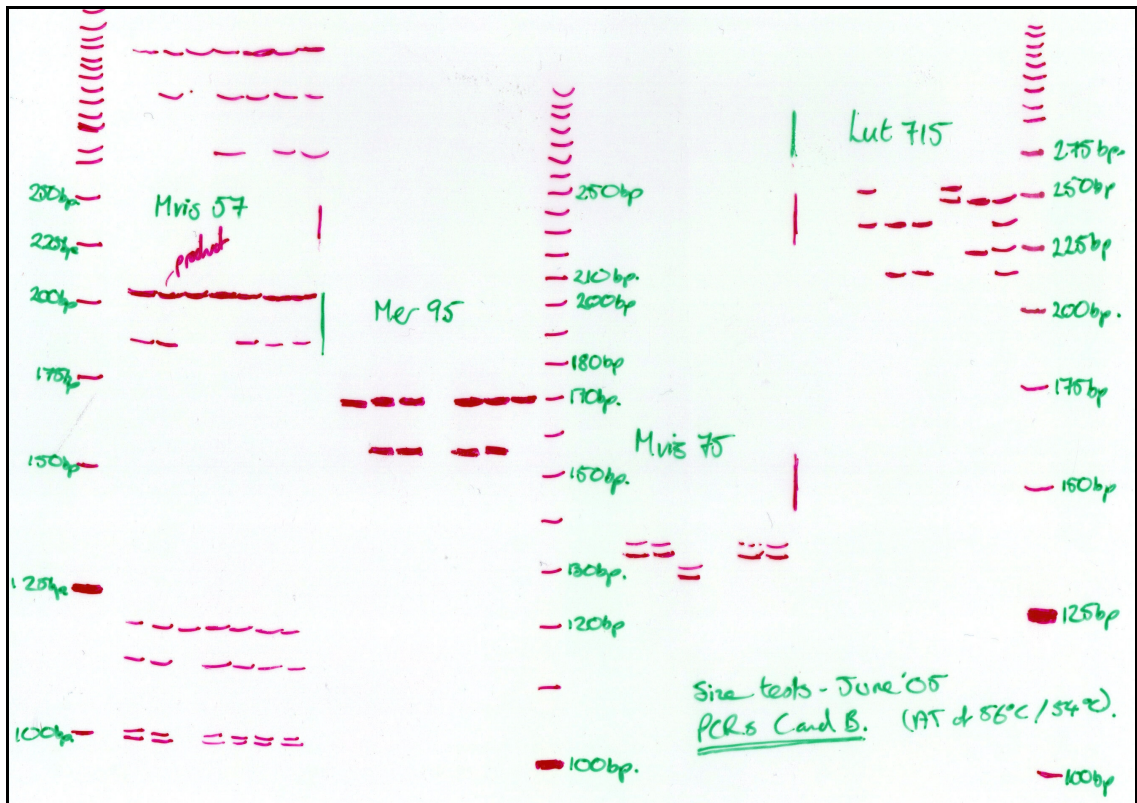 250bp
Mvis 57
225bp
product
200bp
175bp
150bp
125bp
100bp
Mer 95
250bp
210bp.
200bp
180bp
170bp.
150bp.
130bp.
120bp
100bp.
Mvis 75
Lut 715
275bp.
250bp
225bp
200bp.
175bp
150bp
125bp
100bp
Size tests - June '05
PCRs C and B. (AT of 56°C / 54°C).